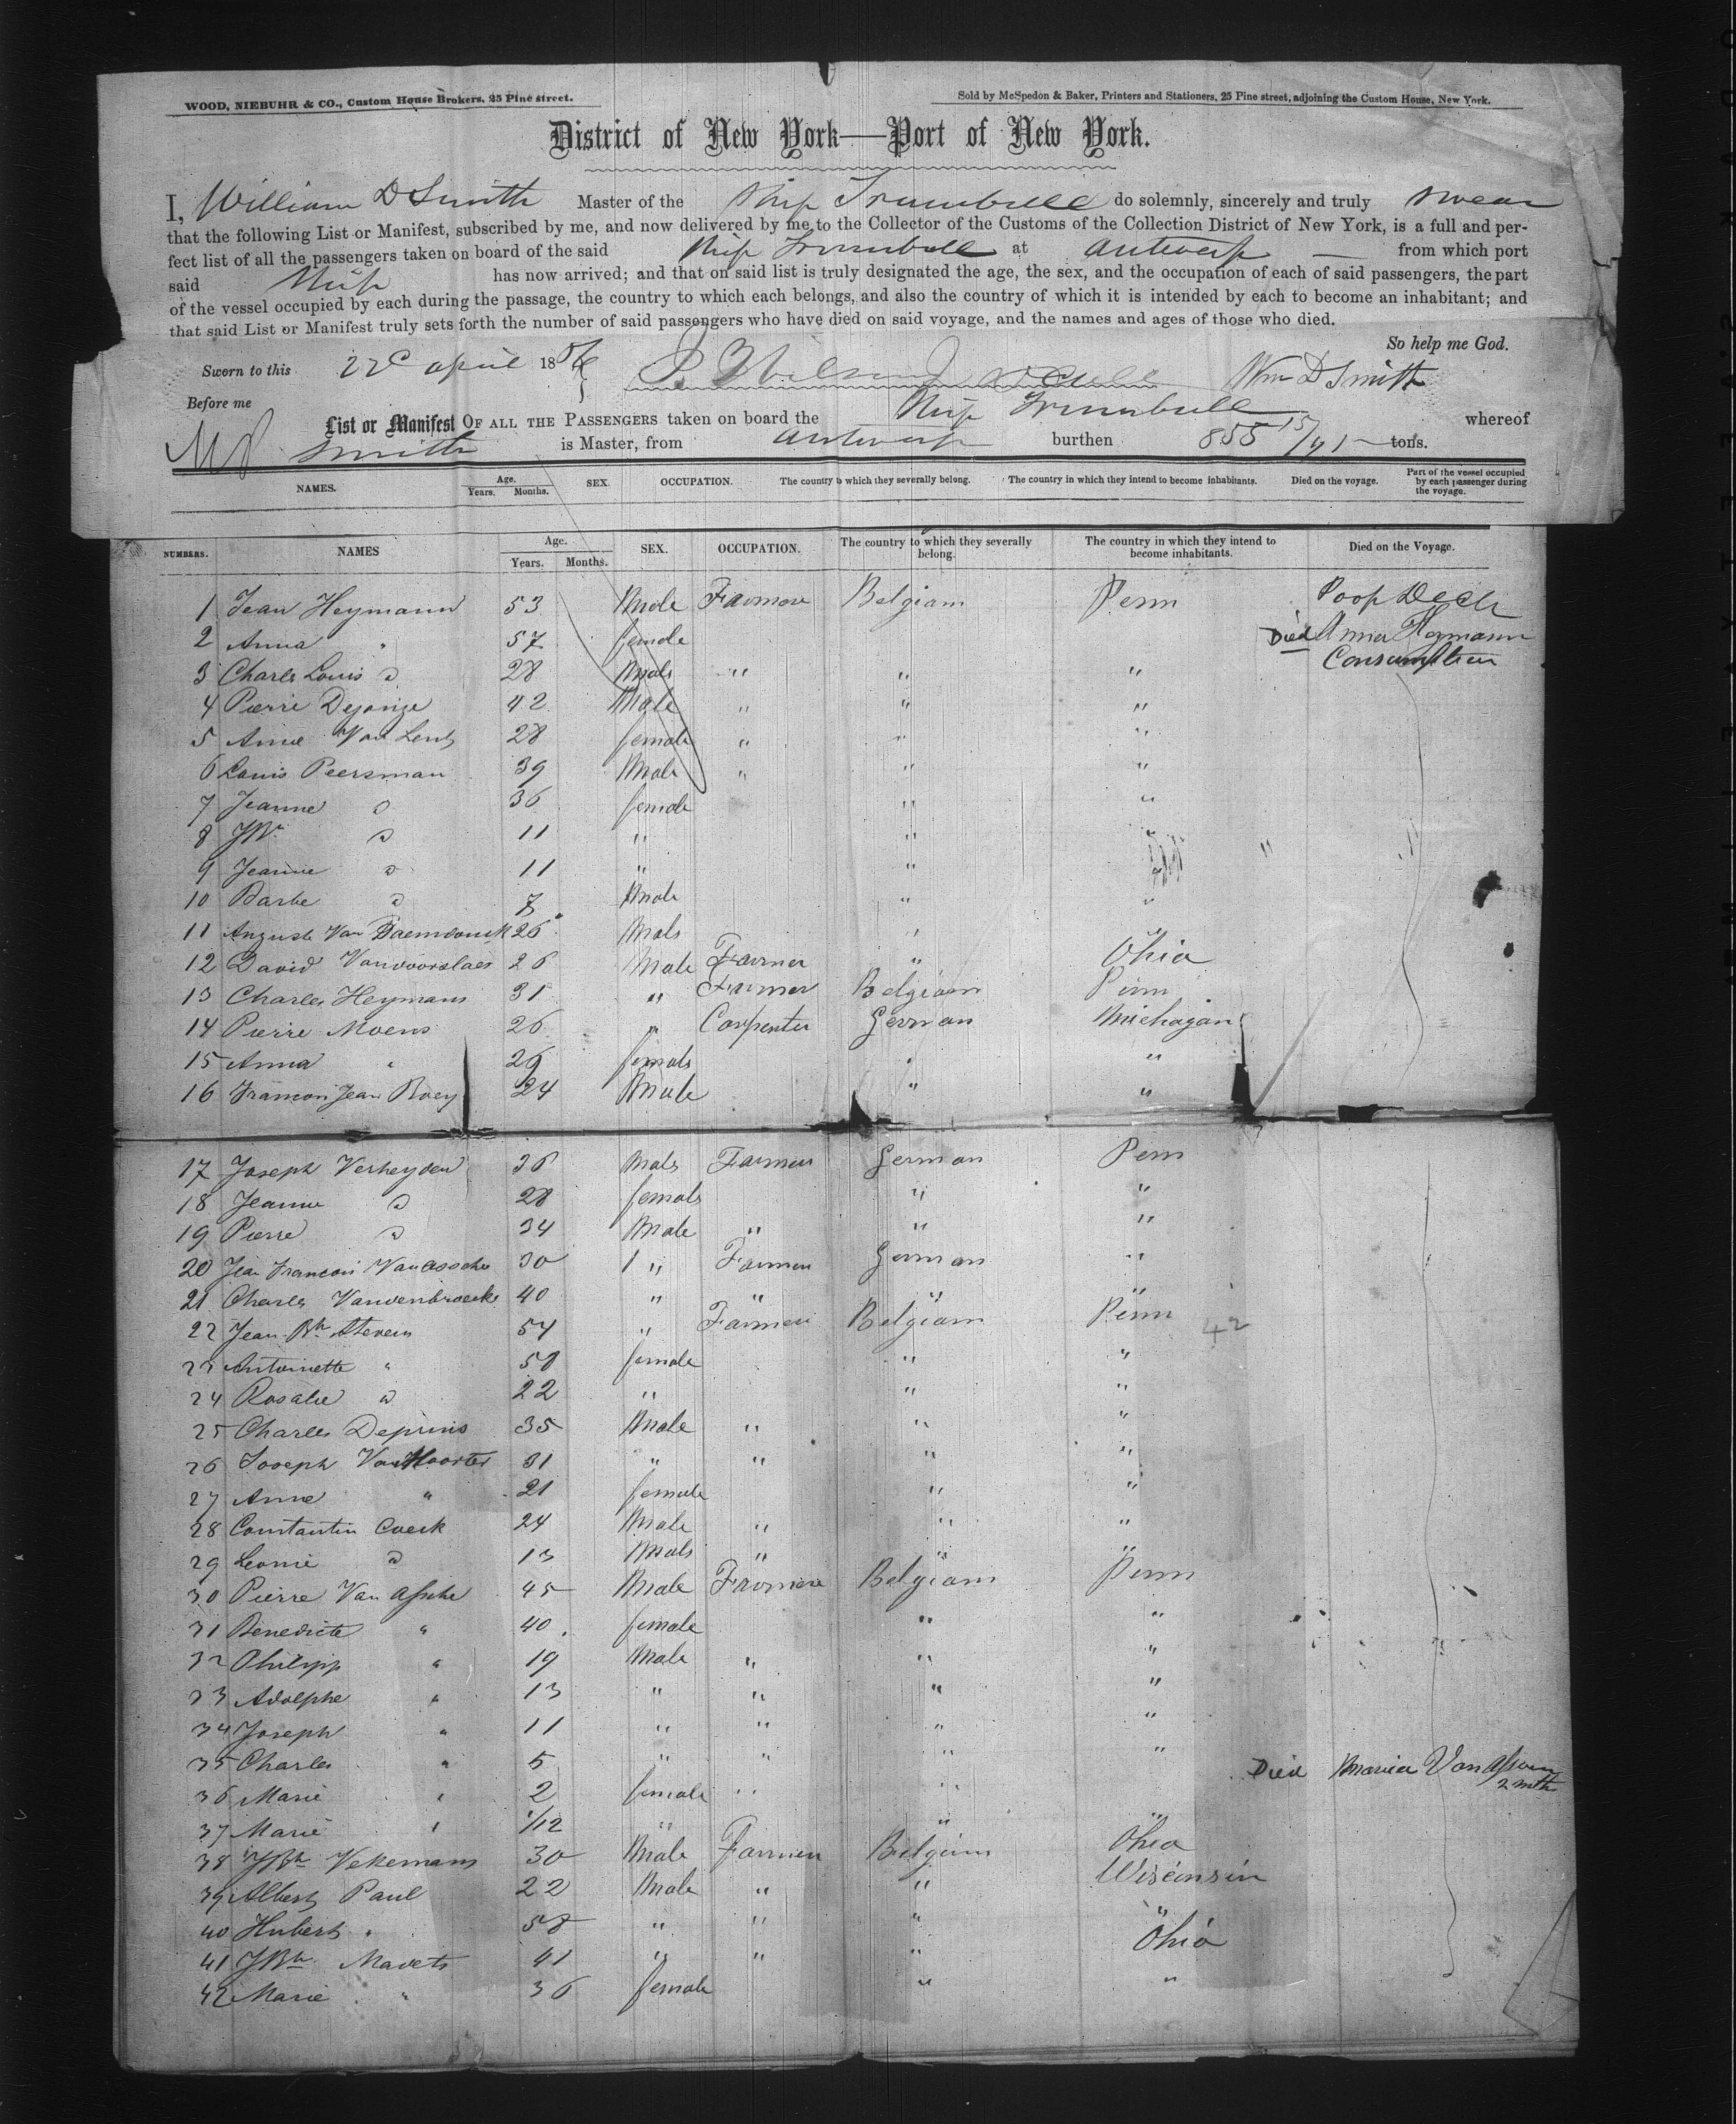 WOOD, NIEBUHR & CO., Custom House Brokers, 25 Pine street.
Sold by McSpedon & Baker, Printers and Stationers, 25 Pine street, adjoining the Custom House, New York.
District of New York—Port of New York.
I, William D Smith Master of the Ship Trumbull do solemnly, sincerely and truly swear
that the following List or Manifest, subscribed by me, and now delivered by me to the Collector of the Customs of the Collection District of New York, is a full and per-
fect list of all the passengers taken on board of the said Ship Trumbull at Antwerp — from which port
said Ship has now arrived; and that on said list is truly designated the age, the sex, and the occupation of each of said passengers, the part
of the vessel occupied by each during the passage, the country to which each belongs, and also the country of which it is intended by each to become an inhabitant; and
that said List or Manifest truly sets forth the number of said passengers who have died on said voyage, and the names and ages of those who died.
So help me God.
Sworn to this 22d April 1856 Wm D Smith
Before me
List or Manifest OF ALL THE PASSENGERS taken on board the Ship Trumbull whereof
W D Smith is Master, from Antwerp burthen 855 tons.
NAMES. Age. Years. Months. SEX. OCCUPATION. The country to which they severally belong. The country in which they intend to become inhabitants. Died on the voyage. Part of the vessel occupied by each passenger during the voyage.
NUMBERS. NAMES Age. Years. Months. SEX. OCCUPATION. The country to which they severally belong. The country in which they intend to become inhabitants. Died on the Voyage.
1 Jean Heymann 53 Male Farmer Belgiam Penn Poop Deck
2 Anna " 57 female Died Anna Heymann
3 Charles Louis d 28 Male " " " Consumption
4 Pierre Dejonge 42 Male " " "
5 Anne Van 28 female " " "
6 Louis Peersman 39 Male " " "
7 Jeanne d 36 female " "
8 JBt d 11 " " "
9 Jeanne d 11 " "
10 Barbe d 7 Male " "
11 Auguste Van 26 Male " "
12 David Vanvoorslaes 26 Male Farmer " Ohio
13 Charles Heymans 31 " Farmer Belgiam Penn
14 Pierre Moens 26 " Carpenter German Michagan
15 Anna " 26 female " "
16 Jean Roey 24 Male " "
17 Joseph Verheyden 36 Male Farmer German Penn
18 Jeanne d 28 female " "
19 Pierre d 34 Male " " "
20 Jean Francois Vanassche 30 " Farmer German "
21 Charles Vandenbroecke 40 " " " "
22 Jean Bte Stevens 54 " Farmer Belgiam Penn 42
23 Antoinette " 58 female " "
24 Rosalie d 22 " " "
25 Charles Deprins 35 Male " " "
26 Joseph 31 " " " "
27 Anne " 21 female " "
28 Constantin Coeck 24 Male " " "
29 Leonie d 13 Male " " "
30 Pierre Van Assche 45 Male Farmer Belgiam Penn
31 Benedicte " 40 female " "
32 Philipp " 19 Male " " "
33 Adolphe " 13 " " " "
34 Joseph " 11 " " " "
35 Charles " 5 " " " " Died Maria Van 2 mth
36 Marie " 2 female " "
37 Marie " 1/12 " " "
38 JBte Vekemans 30 Male Farmer Belgium Ohio
39 Albert Paul 22 Male " " Wisconsin
40 Hubert " 58 " " " "
41 JBte Mavets 41 " " " Ohio
42 Marie " 36 female " "